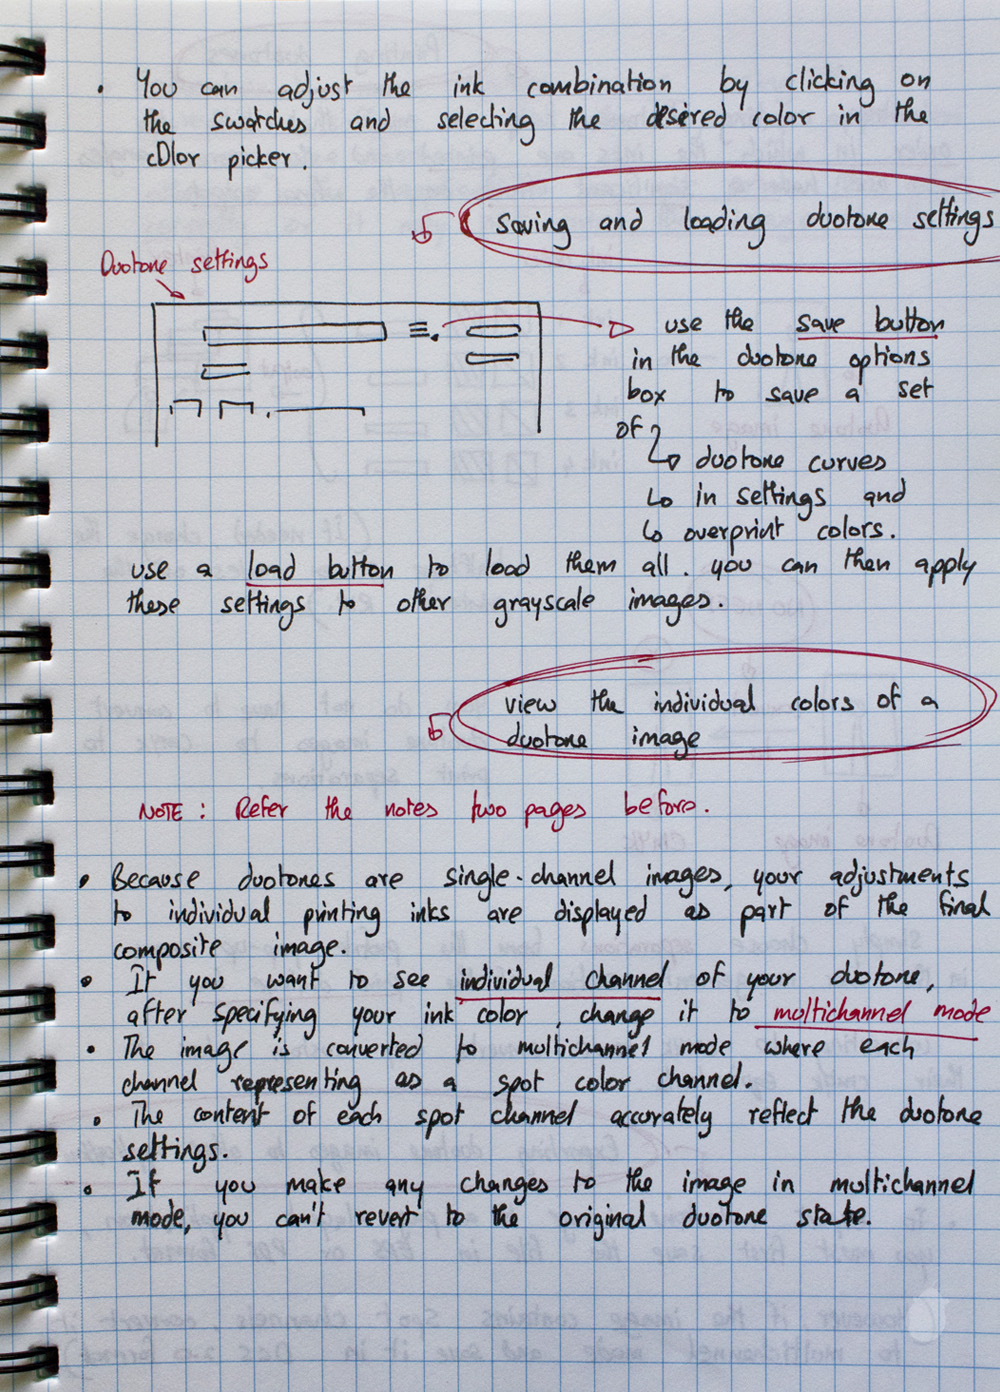 • You can adjust the ink combination by clicking on
the swatches and selecting the desired color in the
color picker.
Saving and loading duotone settings
Duotone settings
use the save button
in the duotone options
box to save a set
of
duotone curves
in settings and
overprint colors.
use a load button to load them all. you can then apply
these settings to other grayscale images.
view the individual colors of a
duotone image
NOTE: Refer the notes two pages before.
• Because duotones are single-channel images, your adjustments
to individual printing inks are displayed as part of the final
composite image.
• If you want to see individual channel of your duotone,
after specifying your ink color, change it to multichannel mode
• The image is converted to multichannel mode where each
channel representing as a spot color channel.
• The content of each spot channel accurately reflect the duotone
settings.
• If you make any changes to the image in multichannel
mode, you can't revert to the original duotone state.